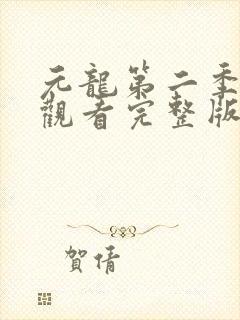 元龍第二季
觀看完整版
賀倩